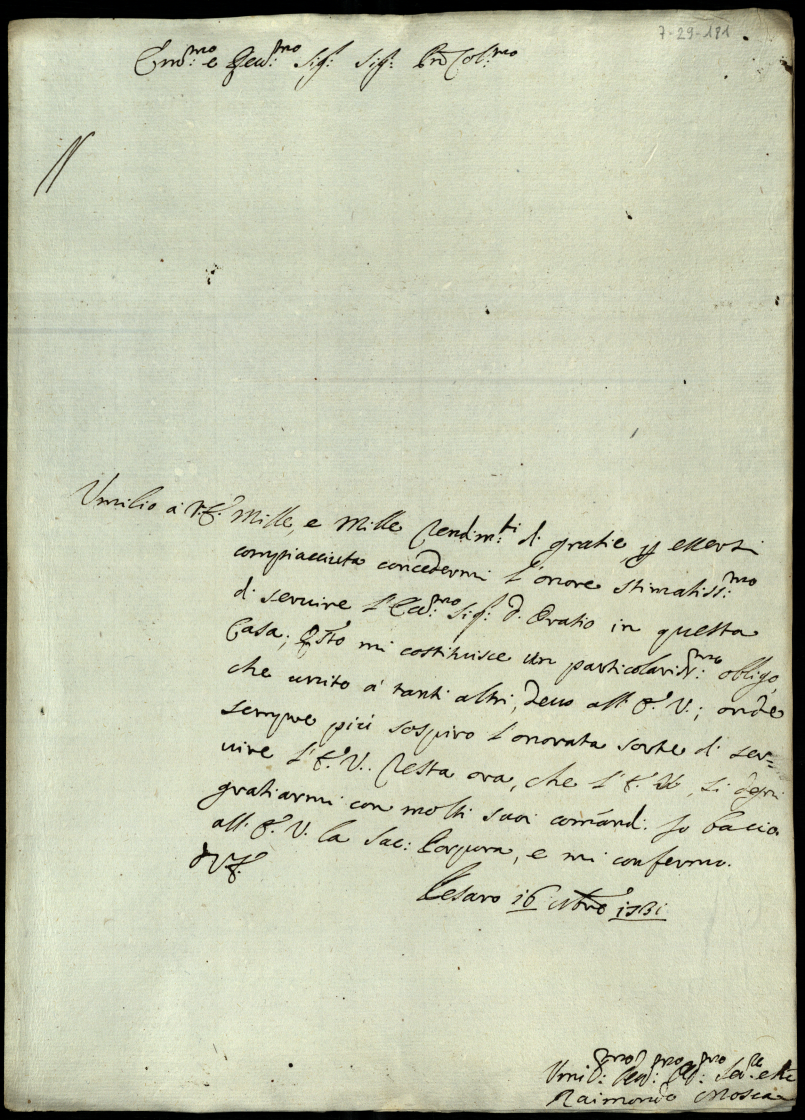 7-29-181
Em.mo e Rev.mo Sig.r Sig.r Pron Col.mo
Umilio à V. E. mille, e mille rendim.ti di gratie per essersi
compiacciuta concedermi l'onore stimatiss.mo
di servire l'Ecc.mo Sig.r D. Oratio in questa
Casa; Q.sto mi costituisce un particolariss.mo obligo,
che unito à tanti altri, devo all'E. V.; onde
sempre più sospiro l'onorata sorte di ser=
vire l'E. V. Resta ora, che l'E. V. si degni
gratiarmi con molti suoi comandi. Io bacio
all'E. V. la Sac: Porpora, e mi confermo.
D V E
Pesaro 16 1731
Umil.mo Dev.mo Obl.mo Ser.re
Raimondo Mosca